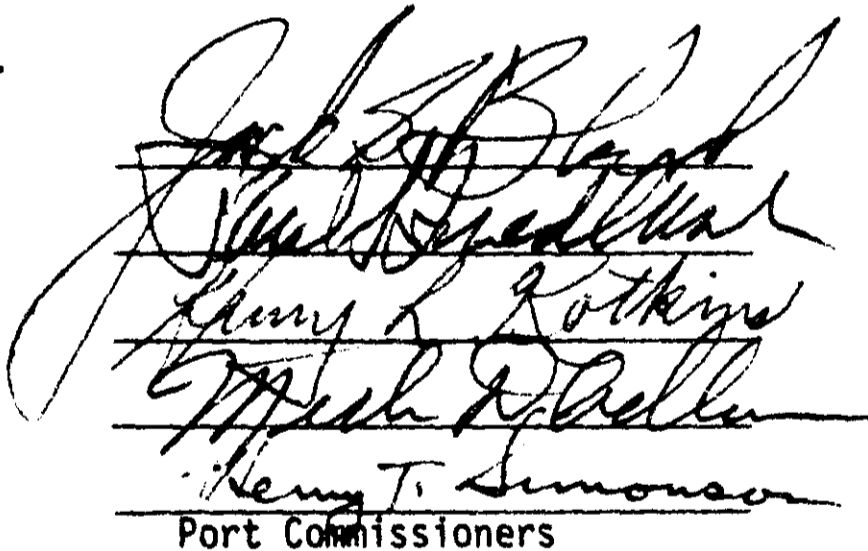 Jack S. Block
Paul S. Friedlander
Henry L. Kotkins
Merle D. Adlum
Henry T. Simonson
Port Commissioners